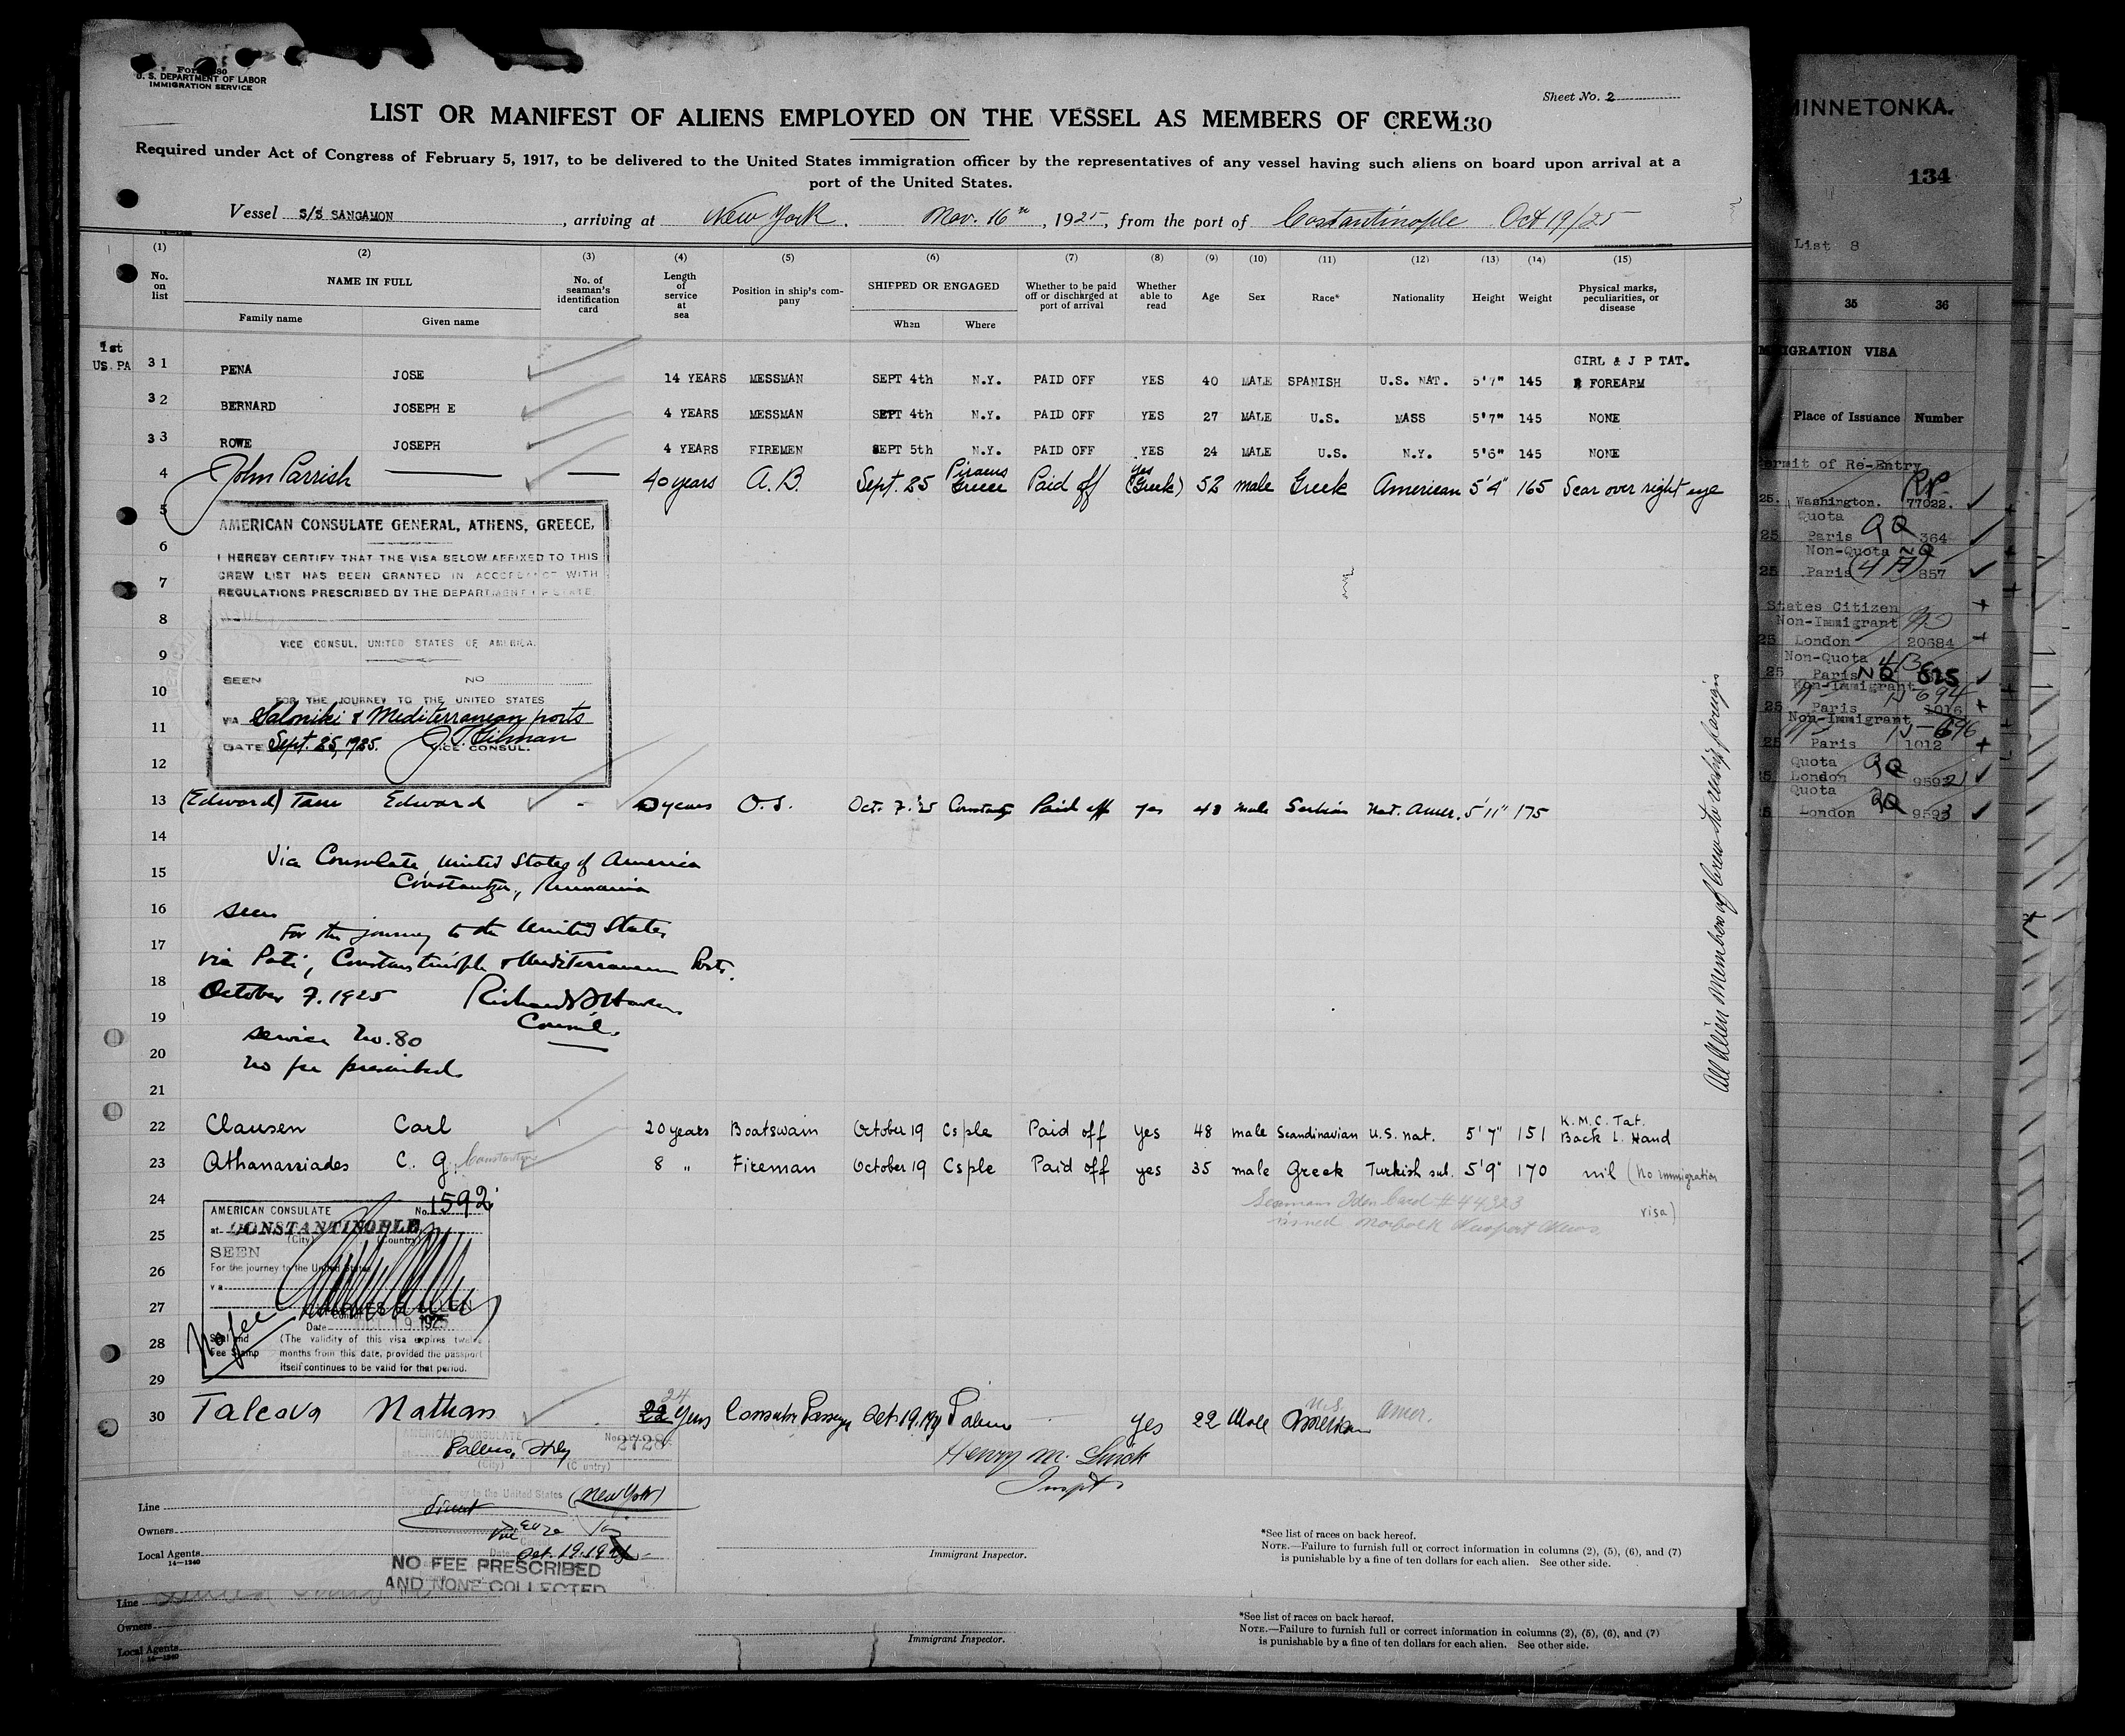 U. S. DEPARTMENT OF LABOR
IMMIGRATION SERVICE
Sheet No. 2
LIST OR MANIFEST OF ALIENS EMPLOYED ON THE VESSEL AS MEMBERS OF CREW
130
Required under Act of Congress of February 5, 1917, to be delivered to the United States immigration officer by the representatives of any vessel having such aliens on board upon arrival at a
port of the United States.
Vessel S/S SANGAMON, arriving at New York. Nov. 16th, 1925, from the port of Costantinople Oct 19/25
(1) (2) (3) (4) (5) (6) (7) (8) (9) (10) (11) (12) (13) (14) (15)
No. on list
NAME IN FULL
Family name Given name
No. of seaman's identification card
Length of service at sea
Position in ship's company
SHIPPED OR ENGAGED
When Where
Whether to be paid off or discharged at port of arrival
Whether able to read
Age Sex Race* Nationality Height Weight
Physical marks, peculiarities, or disease
1st
US. PA
31 PENA JOSE 14 YEARS MESSMAN SEPT 4th N.Y. PAID OFF YES 40 MALE SPANISH U.S. NAT. 5'7" 145 GIRL & J P TAT. FOREARM
32 BERNARD JOSEPH E 4 YEARS MESSMAN SEPT 4th N.Y. PAID OFF YES 27 MALE U.S. MASS 5'7" 145 NONE
33 ROWE JOSEPH 4 YEARS FIREMEN SEPT 5th N.Y. PAID OFF YES 24 MALE U.S. N.Y. 5'6" 145 NONE
4 John Parrish 40 years A.B. Sept. 25 Piraeus Greece Paid off yes (Greek) 52 male Greek American 5'4" 165 Scar over right eye
5
AMERICAN CONSULATE GENERAL, ATHENS, GREECE,
6
I HEREBY CERTIFY THAT THE VISA BELOW AFFIXED TO THIS
7
CREW LIST HAS BEEN GRANTED IN ACCORDANCE WITH
REGULATIONS PRESCRIBED BY THE DEPARTMENT OF STATE.
8
VICE CONSUL, UNITED STATES OF AMERICA.
9
SEEN NO
10
FOR THE JOURNEY TO THE UNITED STATES
VIA Saloniki & Mediterranean ports
11
DATE Sept. 25, 1925. VICE CONSUL.
12
13 (Edward) Tam Edward years O.S. Oct. 7. '25 Constanz Paid off yes 43 male Serbian Nat. Amer. 5'11" 175
14
Via Consulate United States of America
15
Constantza, Rumania
16
seen
For the journey to the United States
17
via Poti, Constantinople & Mediterranean Ports.
18
October 7. 1925
19
Consul.
service No. 80
20
no fee prescribed
21
22 Clausen Carl 20 years Boatswain October 19 Csple Paid off yes 48 male Scandinavian U.S. nat. 5'7" 151 K.M.C. Tat. Back L. Hand
23 Athanarriades C. G. 8 " Fireman October 19 Csple Paid off yes 35 male Greek Turkish sub. 5'9" 170 nil (No immigration visa)
Seamans Iden Card # 44323
issued Norfolk Newport News.
24
AMERICAN CONSULATE No. 1592
at CONSTANTINOPLE
(City) (Country)
25
SEEN
For the journey to the United States
26
via
27
Date 19 1925
No fee
28
Seal and Fee Stamp
(The validity of this visa expires twelve
months from this date, provided the passport
itself continues to be valid for that period.
29
30 Talcova Nathan 24 Years Consular Passenger Oct. 19. 1925 Palermo yes 22 Male American U.S. Amer.
AMERICAN CONSULATE
Palermo, Italy No. 2728
(City) (Country)
Henry M.
Inspt
For the journey to the United States (New York)
direct
Oct. 19. 19
NO FEE PRESCRIBED
AND NONE COLLECTED
Line
Owners
Local Agents
14—1240
Immigrant Inspector.
*See list of races on back hereof.
NOTE.—Failure to furnish full or correct information in columns (2), (5), (6), and (7)
is punishable by a fine of ten dollars for each alien. See other side.
All Alien Members of Crew to reship foreign
Line
Owners
Local Agents
14—1240
Immigrant Inspector.
*See list of races on back hereof.
NOTE.—Failure to furnish full or correct information in columns (2), (5), (6), and (7)
is punishable by a fine of ten dollars for each alien. See other side.
MINNETONKA.
134
List 8
35 36
IMMIGRATION VISA
Place of Issuance Number
Permit of Re-Entry
25. Washington. 77022.
Quota QQ
25 Paris 364
Non-Quota NQ
25 Paris (4 A) 857
States Citizen
Non-Immigrant
25 London 20684
Non-Quota 4B
25 Paris NQ 825
Non-Immigrant
25 Paris 1016
Non-Immigrant
25 Paris 1012
Quota QQ
London 9592
Quota QQ
London 9593